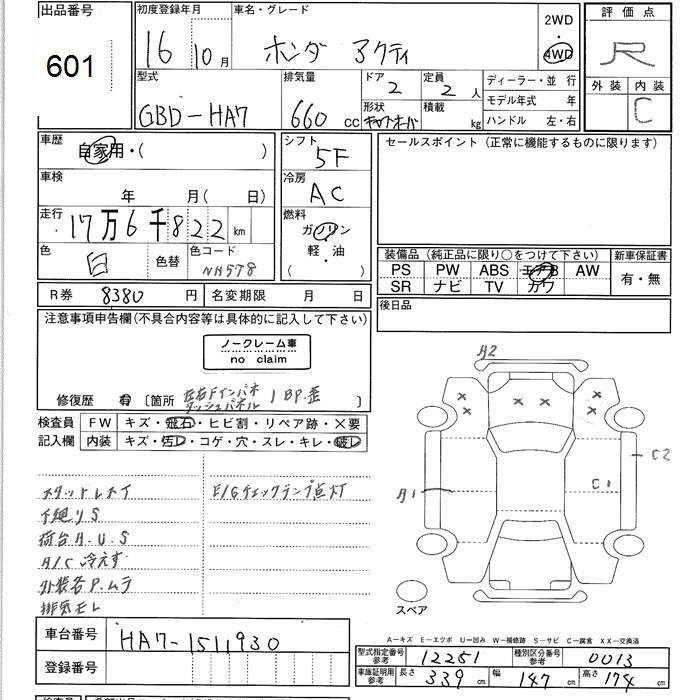 出品番号 601
初度登録年月 16 10月
車名・グレード ホンダ アクティ
2WD ・ 4WD
評価点 R
外装 内装 C
型式 GBD-HA7
排気量 660 cc
ドア 2
定員 2 人
形状 キャブオーバ
積載 kg
ディーラー・並行
モデル年式 年
ハンドル 左・右
車歴 自家用・( )
シフト 5F
セールスポイント (正常に機能するものに限ります)
車検 年 月(日)
冷房 AC
走行 17万6千822 km
燃料 ガソリン 軽・油 ( ・ )
色 白 色替
色コード NH578
装備品 (純正品に限り○をつけて下さい) 新車保証書
PS PW ABS エアB AW 有・無
SR ナビ TV カワ
R券 8380円 名変期限 月 日
後日品
注意事項申告欄(不具合内容等は具体的に記入して下さい)
ノークレーム車
no claim
修復歴 有 〔箇所 左右Fインパネ ダッシュパネル 1BP.歪 〕
検査員 FW キズ・飛石・ヒビ割・リペア跡・×要
記入欄 内装 キズ・汚レ・コゲ・穴・スレ・キレ・破レ
A2
C2
A1
C1
スタットレスタイ
E/Gチェックランプ点灯
下廻りS
荷台A.U.S
A/C冷えず
外装各P.ムラ
排気モレ
スペア
A-キズ E-エクボ U-凹み W-補修跡 S-サビ C-腐食 XX-交換済
車台番号 HA7-1511930
登録番号
型式指定番号 参考 12251
種別区分番号 参考 0013
車庫証明用 参考 長さ 339 cm 幅 147 cm 高さ 174 cm